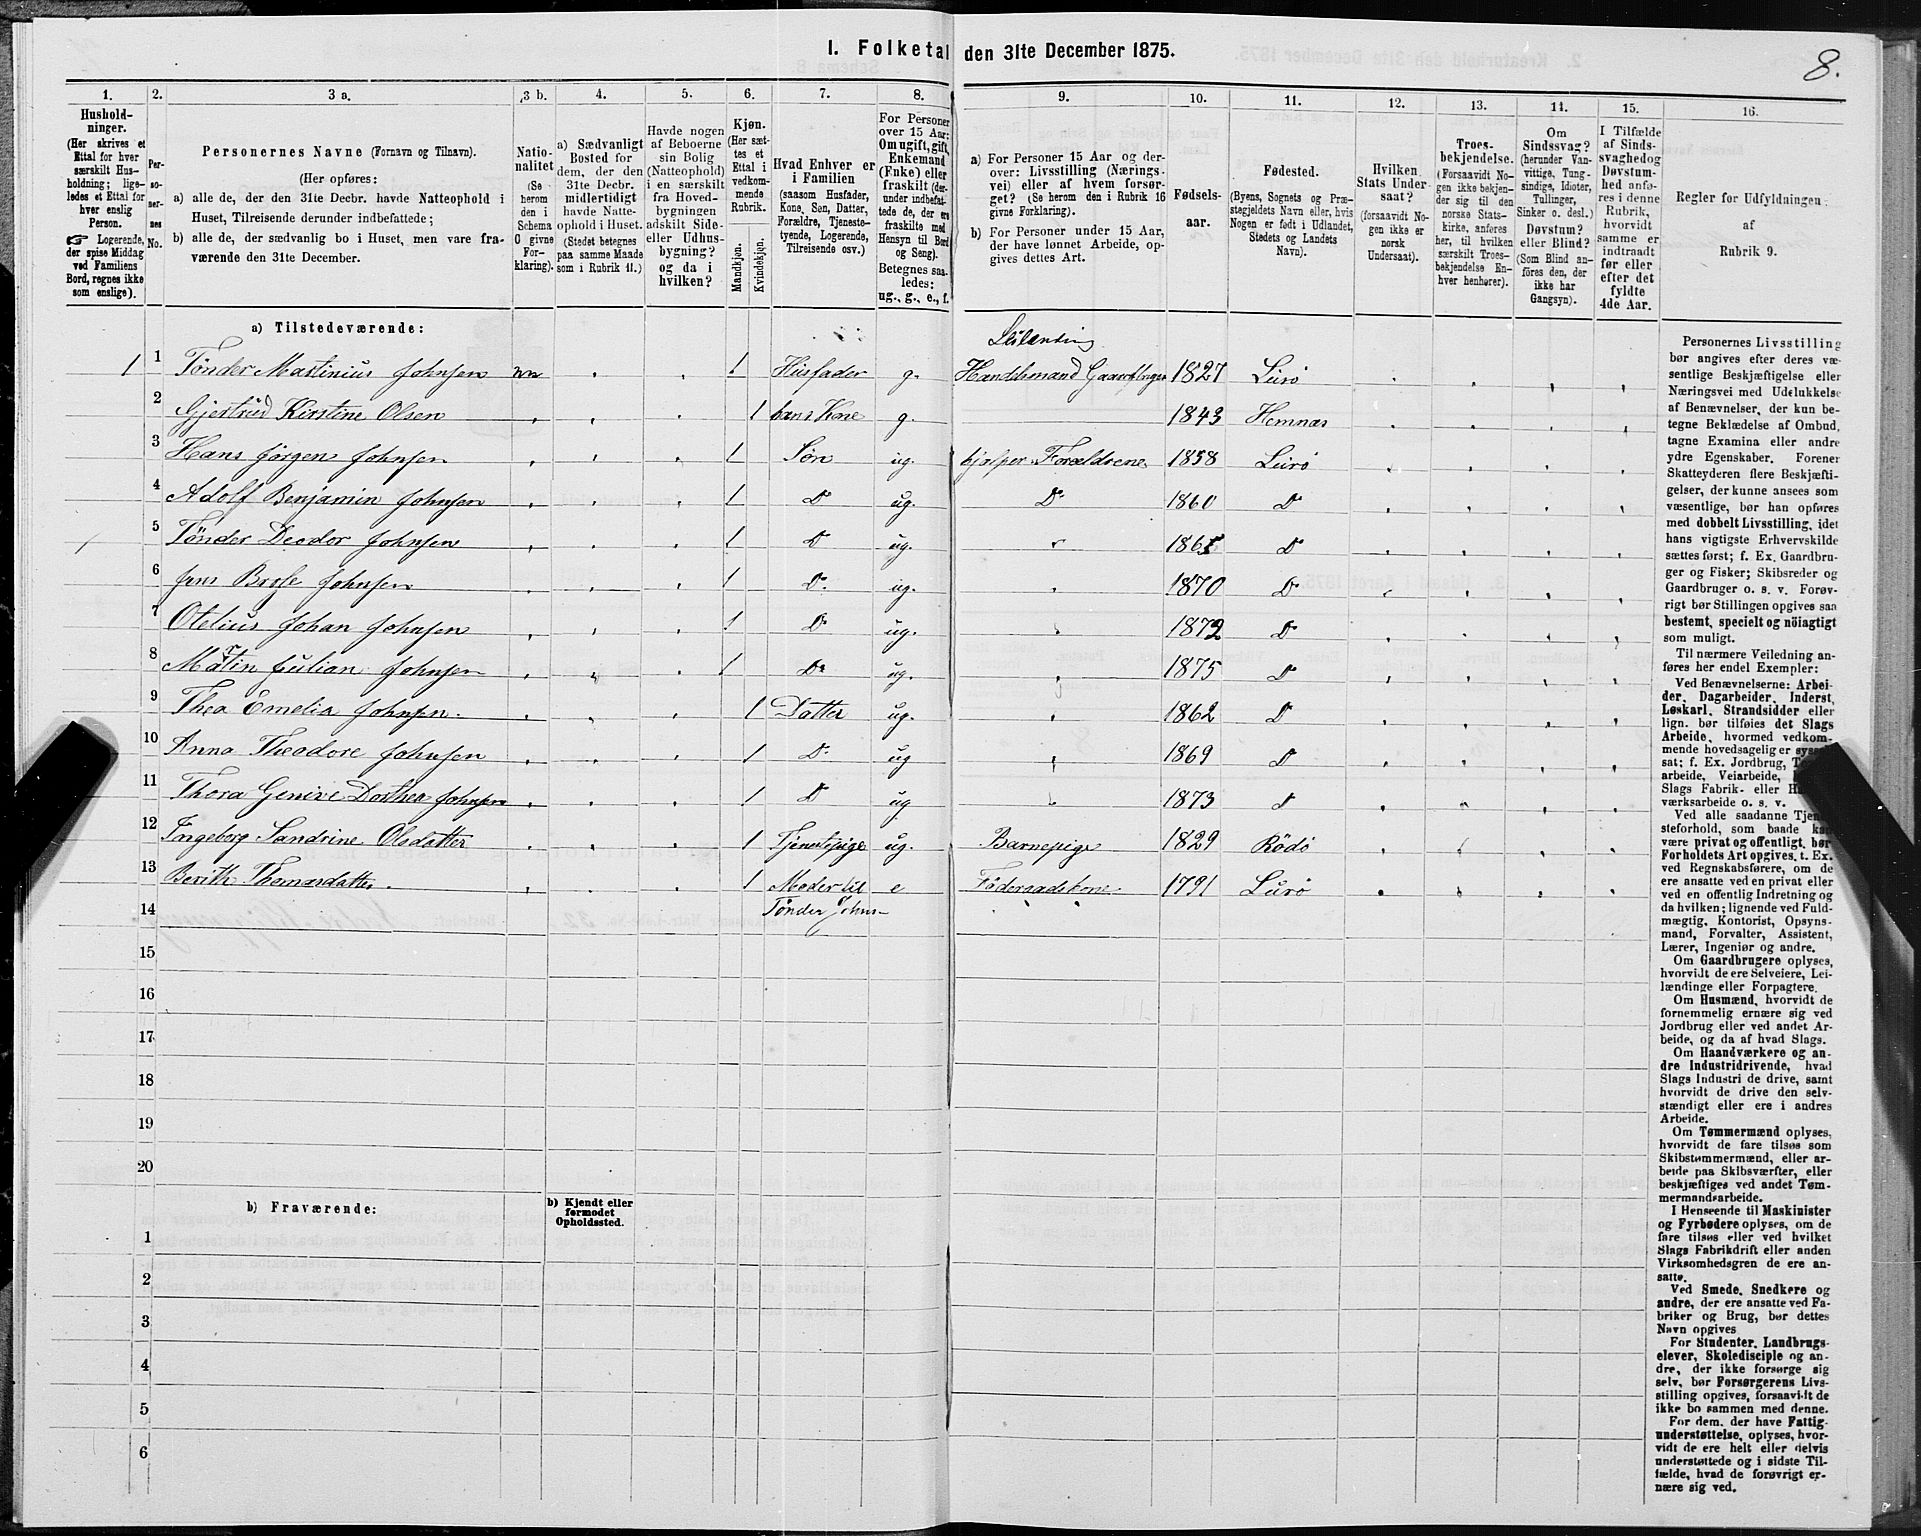 8.
1. Folketal den 31te December 1875.
1. 2. 3 a. 3 b. 4. 5. 6. 7. 8. 9. 10. 11. 12. 13. 14. 15. 16.
Hushold-
ninger.
(Her skrives et
Ettal for hver
særskilt Hus-
holdning; lige-
ledes et Ettal for
hver enslig
Person.
☞ Logerende,
der spise Middag
ved Familiens
Bord, regnes ikke
som enslige).
Per-
so-
ner-
nes
No.
Personernes Navne (Fornavn og Tilnavn).
(Her opføres:
a) alle de, der den 31te Decbr. havde Natteophold i
Huset, Tilreisende derunder indbefattede;
b) alle de, der sædvanlig bo i Huset, men vare fra-
værende den 31te December.
Natio-
nalitet
(Se
herom
den i
Schema
C givne
For-
klaring).
a) Sædvanligt
Bosted for
dem, der den
31te Decbr.
midlertidigt
havde Natte-
ophold i Huset.
(Stedet betegnes
paa samme Maade
som i Rubrik 11.)
Havde nogen
af Beboerne
sin Bolig
(Natteophold)
i en særskilt
fra Hoved-
bygningen
adskilt Side-
eller Udhus-
bygning?
og da i
hvilken?
Kjøn.
(Her sæt-
tes et
Ettal i
vedkom-
mende
Rubrik.
Mandkjøn.
Kvindekjøn.
Hvad Enhver er
i Familien
(saasom Husfader,
Kone, Søn, Datter,
Forældre, Tjeneste-
tyende, Logerende,
Tilreisende osv.)
For Personer
over 15 Aar:
Om ugift, gift,
Enkemand
(Enke) eller
fraskilt (der-
under indbefat-
tede de, der ere
fraskilte med
Hensyn til Bord
og Seng).
Betegnes saa-
ledes:
ug., g., e., f.
a) For Personer 15 Aar og der-
over: Livsstilling (Nærings-
vei) eller af hvem forsør-
get? (Se herom den i Rubrik 16
givne Forklaring).
b) For Personer under 15 Aar,
der have lønnet Arbeide, op-
gives dettes Art.
Fødsels-
aar.
Fødested.
(Byens, Sognets og Præ-
stegjeldets Navn eller, hvis
Nogen er født i Udlandet,
Stedets og Landets
Navn).
Hvilken
Stats Under-
saat?
(forsaavidt No-
gen ikke er
norsk
Undersaat).
Troes-
bekjendelse.
(Forsaavidt No-
gen ikke bekjen-
der sig til den
norske Stats-
kirke, anføres
her, til hvilken
særskilt Troes-
bekjendelse En-
hver henhører).
Om
Sindssvag?
(herunder Van-
vittige, Tung-
sindige, Idioter,
Tullinger,
Sinker o. desl.)
Døvstum?
eller Blind?
(Som Blind an-
føres den, der
ikke har
Gangsyn).
I Tilfælde
af Sinds-
svaghed og
Døvstum-
hed anfø-
res i denne
Rubrik,
hvorvidt
samme er
indtraadt
før eller
efter det
fyldte
4de Aar.
Regler for Udfyldningen
af
Rubrik 9.
a) Tilstedeværende:
Leilænding
1 1 Tönder Martinius Johnsen nn 1 Husfader g. Handelsmand Gaardbruger 1827 Lurö
2 Gjertrud Kirstine Olsen 1 hans Kone g. 1843 Hemnæs
3 Hans Jörgen Johnsen 1 Sön ug. hjelper Forældrene 1858 Lurö
4 Adolf Benjamin Johnsen 1 D ug. D 1860 D
5 Tönder Deodor Johnsen 1 D ug. 1865 D
6 Jens Brole Johnsen 1 D ug. 1870 D
7 Otelius Johan Johnsen 1 D ug. 1872 D
8 Matin Julian Johnsen 1 D ug. 1875 D
9 Thea Emelia Johnsen 1 Datter ug. 1862 D
10 Anna Theodore Johnsen 1 D ug 1869 D
11 Thora Genive Dorthea Johnsen 1 D ug 1873 D
12 Ingeborg Sandrine Olsdatter 1 Tjenestepige ug. Barnepige 1829 Rödö
13 Berith Thomasdatter. 1 Moder til e Föderaadskone 1791 Lurö
14 Tönder Johns-
15
16
17
18
19
20
b) Fraværende:
b) Kjendt eller
formodet
Opholdssted.
1
2
3
4
5
6
Personernes Livsstilling
bør angives efter deres væ-
sentlige Beskjæftigelse eller
Næringsvei med Udelukkelse
af Benævnelser, der kun be-
tegne Beklædelse af Ombud,
tagne Examina eller andre
ydre Egenskaber. Forener
Skatteyderen flere Beskjæfti-
gelser, der kunne ansees som
væsentlige, bør han opføres
med dobbelt Livsstilling, idet
hans vigtigste Erhvervskilde
sættes først; f. Ex. Gaardbru-
ger og Fisker; Skibsreder og
Gaardbruger o. s. v. Forøv-
rigt bør Stillingen opgives saa
bestemt, specielt og nöiagtigt
som muligt.
Til nærmere Veiledning an-
føres her endel Exempler:
Ved Benævnelserne: Arbei-
der, Dagarbeider, Inderst,
Løskarl, Strandsidder eller
lign. bør tilføies det Slags
Arbeide, hvormed vedkom-
mende hovedsagelig er syssel
sat; f. Ex. Jordbrug,
arbeide, Veiarbeide,
Slags Fabrik- eller
værksarbeide o. s. v.
Ved alle saadanne Tjene
steforhold, som baade kan
være privat og offentligt, bør
Forholdets Art opgives. t. Ex.
ved Regnskabsførere, om de
ere ansatte ved en privat eller
ved en offentlig Indretning og
da hvilken; lignende ved Fuld-
mægtig, Kontorist, Opsyns-
mand, Forvalter, Assistent,
Lærer, Ingeniør og andre.
Om Gaardbrugere oplyses,
hvorvidt de ere Selveiere, Lei-
lændinge eller Forpagtere.
Om Husmænd, hvorvidt de
fornemmelig ernære sig ved
Jordbrug eller ved andet Ar-
beide, og da af hvad Slags.
Om Haandværkere og an-
dre Industridrivende, hvad
Slags Industri de drive, samt
hvorvidt de drive den selv-
stændigt eller ere i andres
Arbeide.
Om Tømmermænd oplyses,
hvorvidt de fare tilsøs som
Skibstømmermænd, eller ar-
beide paa Skibsværfter, eller
beskjæftiges ved andet Tøm-
mermandsarbeide.
I Henseende til Maskinister
og Fyrbødere oplyses, om de
fare tilsøs eller ved hvilket
Slags Fabrikdrift eller anden
Virksomhedsgren de ere an-
satte.
Ved Smede, Snedkere og
andre, der ere ansatte ved Fa-
briker og Brug, bør dettes
Navn opgives
For Studenter, Landbrugs-
elever, Skoledisciple og an-
dre, der ikke forsørge sig
selv, bør Forsørgerens Livs-
stilling opgives, forsaavidt de
ikke bo sammen med denne.
For dem, der have Fattig-
understøttelse, oplyses, hvor-
vidt de ere helt eller delvis
understøttede og i sidste Til-
fælde, hvad de forøvrigt er-
nære sig ved.